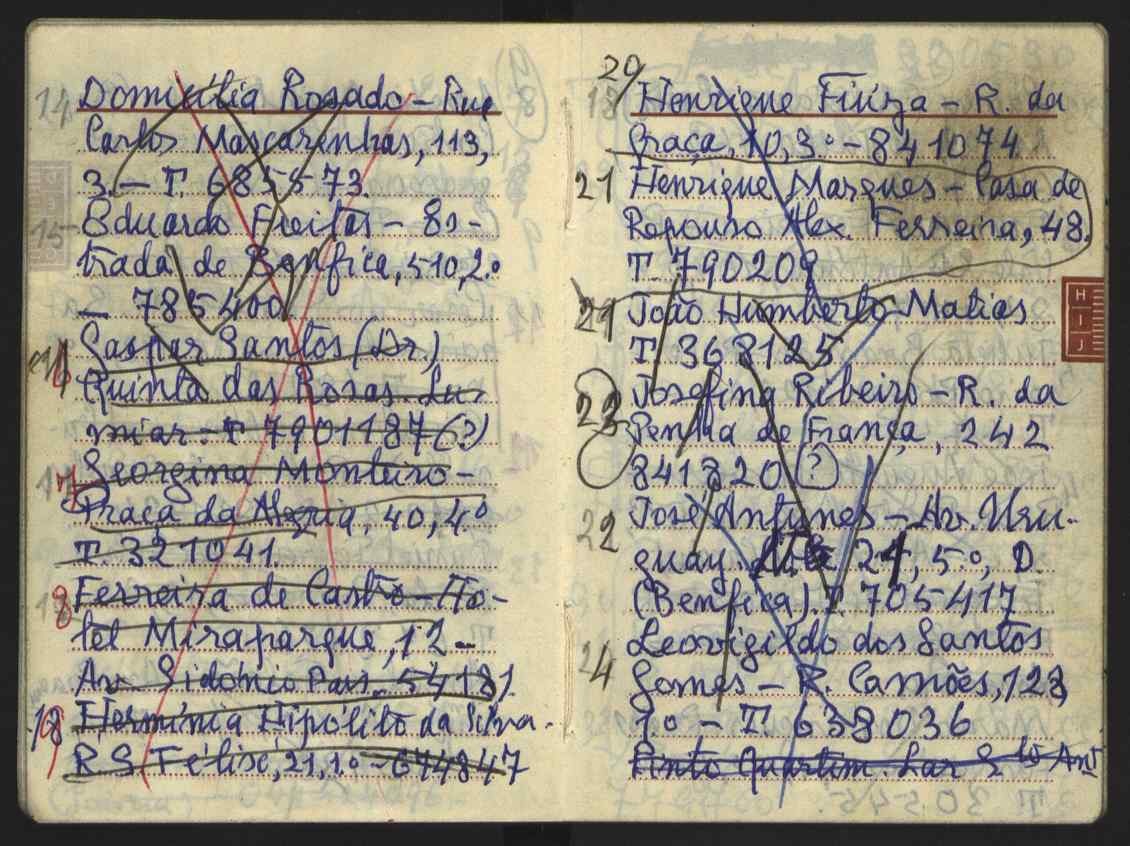 14 Domicilia Rosado - Rua
Carlos Mascarenhas, 113,
3. - T 685573
15- Eduardo Freitas - Es-
trada de Benfica, 510, 2.º
- 785400.
16 Gaspar Santos (Dr.)
Quinta das Rosas Lu-
miar - T 7901187 (?)
17 Georgina Monteiro -
Praça da Alegria, 40, 4.º
T. 321041.
8 Ferreira de Castro - Ho-
tel Miraparque, 12 -
Av. Sidónio Pais. 54181
18 Hermínia Hipólito da Silva -
R S. Félix, 21, 1.º - 674847
20
18 Henrique Fiúza - R. da
Praça, 10, 3.º - 841074
21 Henrique Marques - Casa de
Repouso Alex. Ferreira, 48.
T. 790209
21 João Humberto Matias
T. 368125
23 Josefina Ribeiro - R. da
Penha de França, 242
841820 (?)
22 José Antunes - Av. Uru-
guay. 21, 5.º, D.
(Benfica). T. 705417
24 Leovigildo dos Santos
Gomes - R. Camões, 128
7º - T. 638036
Pinto Quartim. Lar S.to Antº
H
I J